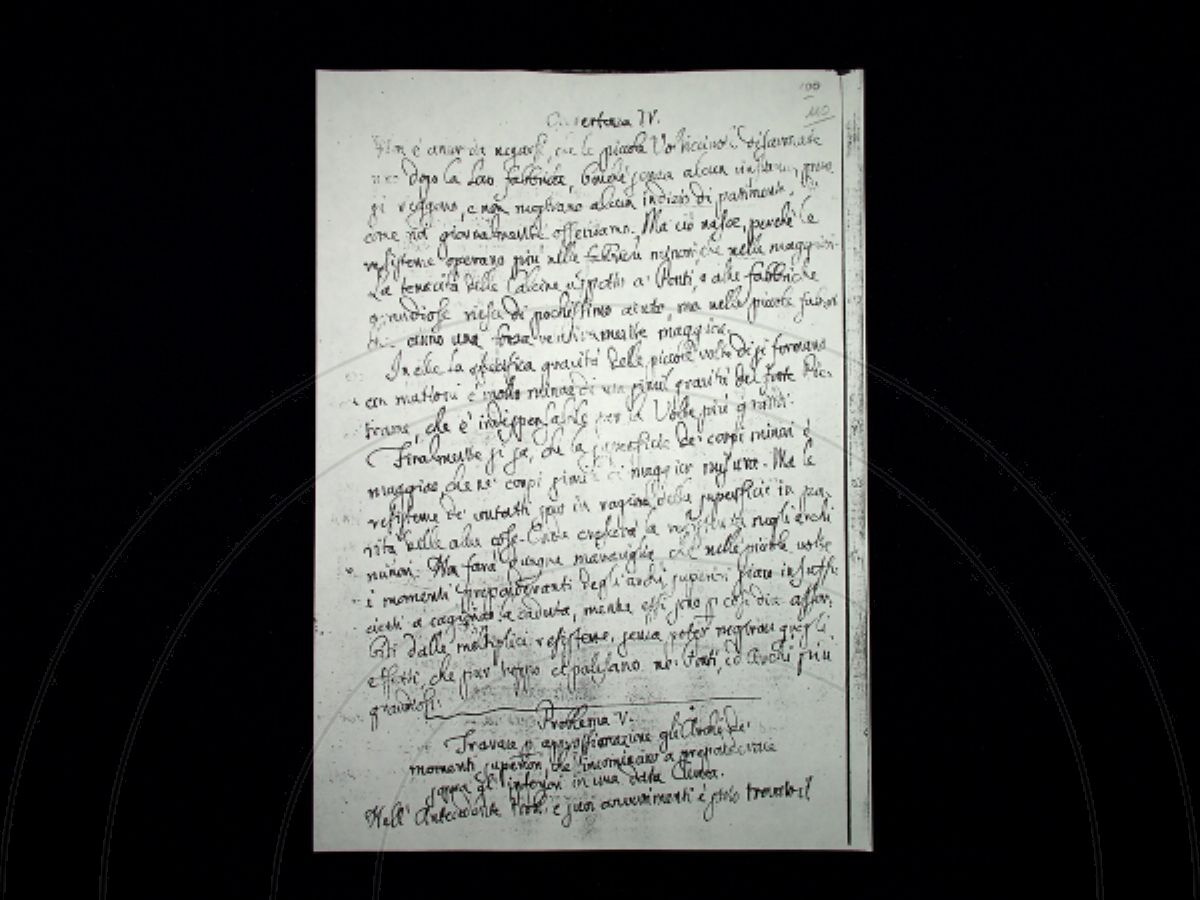 110
ertenza IV.
è ancor da negarsi, che le piccole Volticciuole disarmate
dopo la loro fabbrica, benché senza alcun
si reggono, e non mostrano alcun indizio di patimento,
come noi giornalmente osserviamo. Ma ciò nasce, perché le
resistenze operano più nelle fabbriche minori che nelle maggiori.
La tenacità delle Calcine rispetto a' Ponti, o alle fabbriche
grandiose riesce di pochissimo aiuto, ma nelle piccole fabbri
anno una forza maggiore.
In oltre la specifica gravità delle piccole volte di si formano
con mattoni è molto minore di gravità del forte Pie-
trame, che è indispensabile per le Volte più grandi.
Finalmente si sa, che la superficie de' corpi minori è
maggiore, che ne' corpi simili di maggior misura. Ma le
resistenze de' contatti sono in ragione della superficie in pa-
rità delle altre cose. Onde crescerà la resistenza negli archi
minori. Non farà dunque maraviglia che nelle piccole volte
i momenti preponderanti degli archi superiori siano insuffi-
cienti a cagionar la caduta, mentre essi sono per così dir assor-
biti dalle moltiplici resistenze, senza poter mostrar quegli
effetti, che pur troppo si palesano ne' Ponti, ed Archi più
grandiosi.
Problema V.
Trovare p approssimazione gli Archi de'
momenti superiori che incominciano a preponderare
sopra gl' inferiori in una data Curva.
Nell' Antecedente Prob. e suoi avvertimenti è stato trovato il